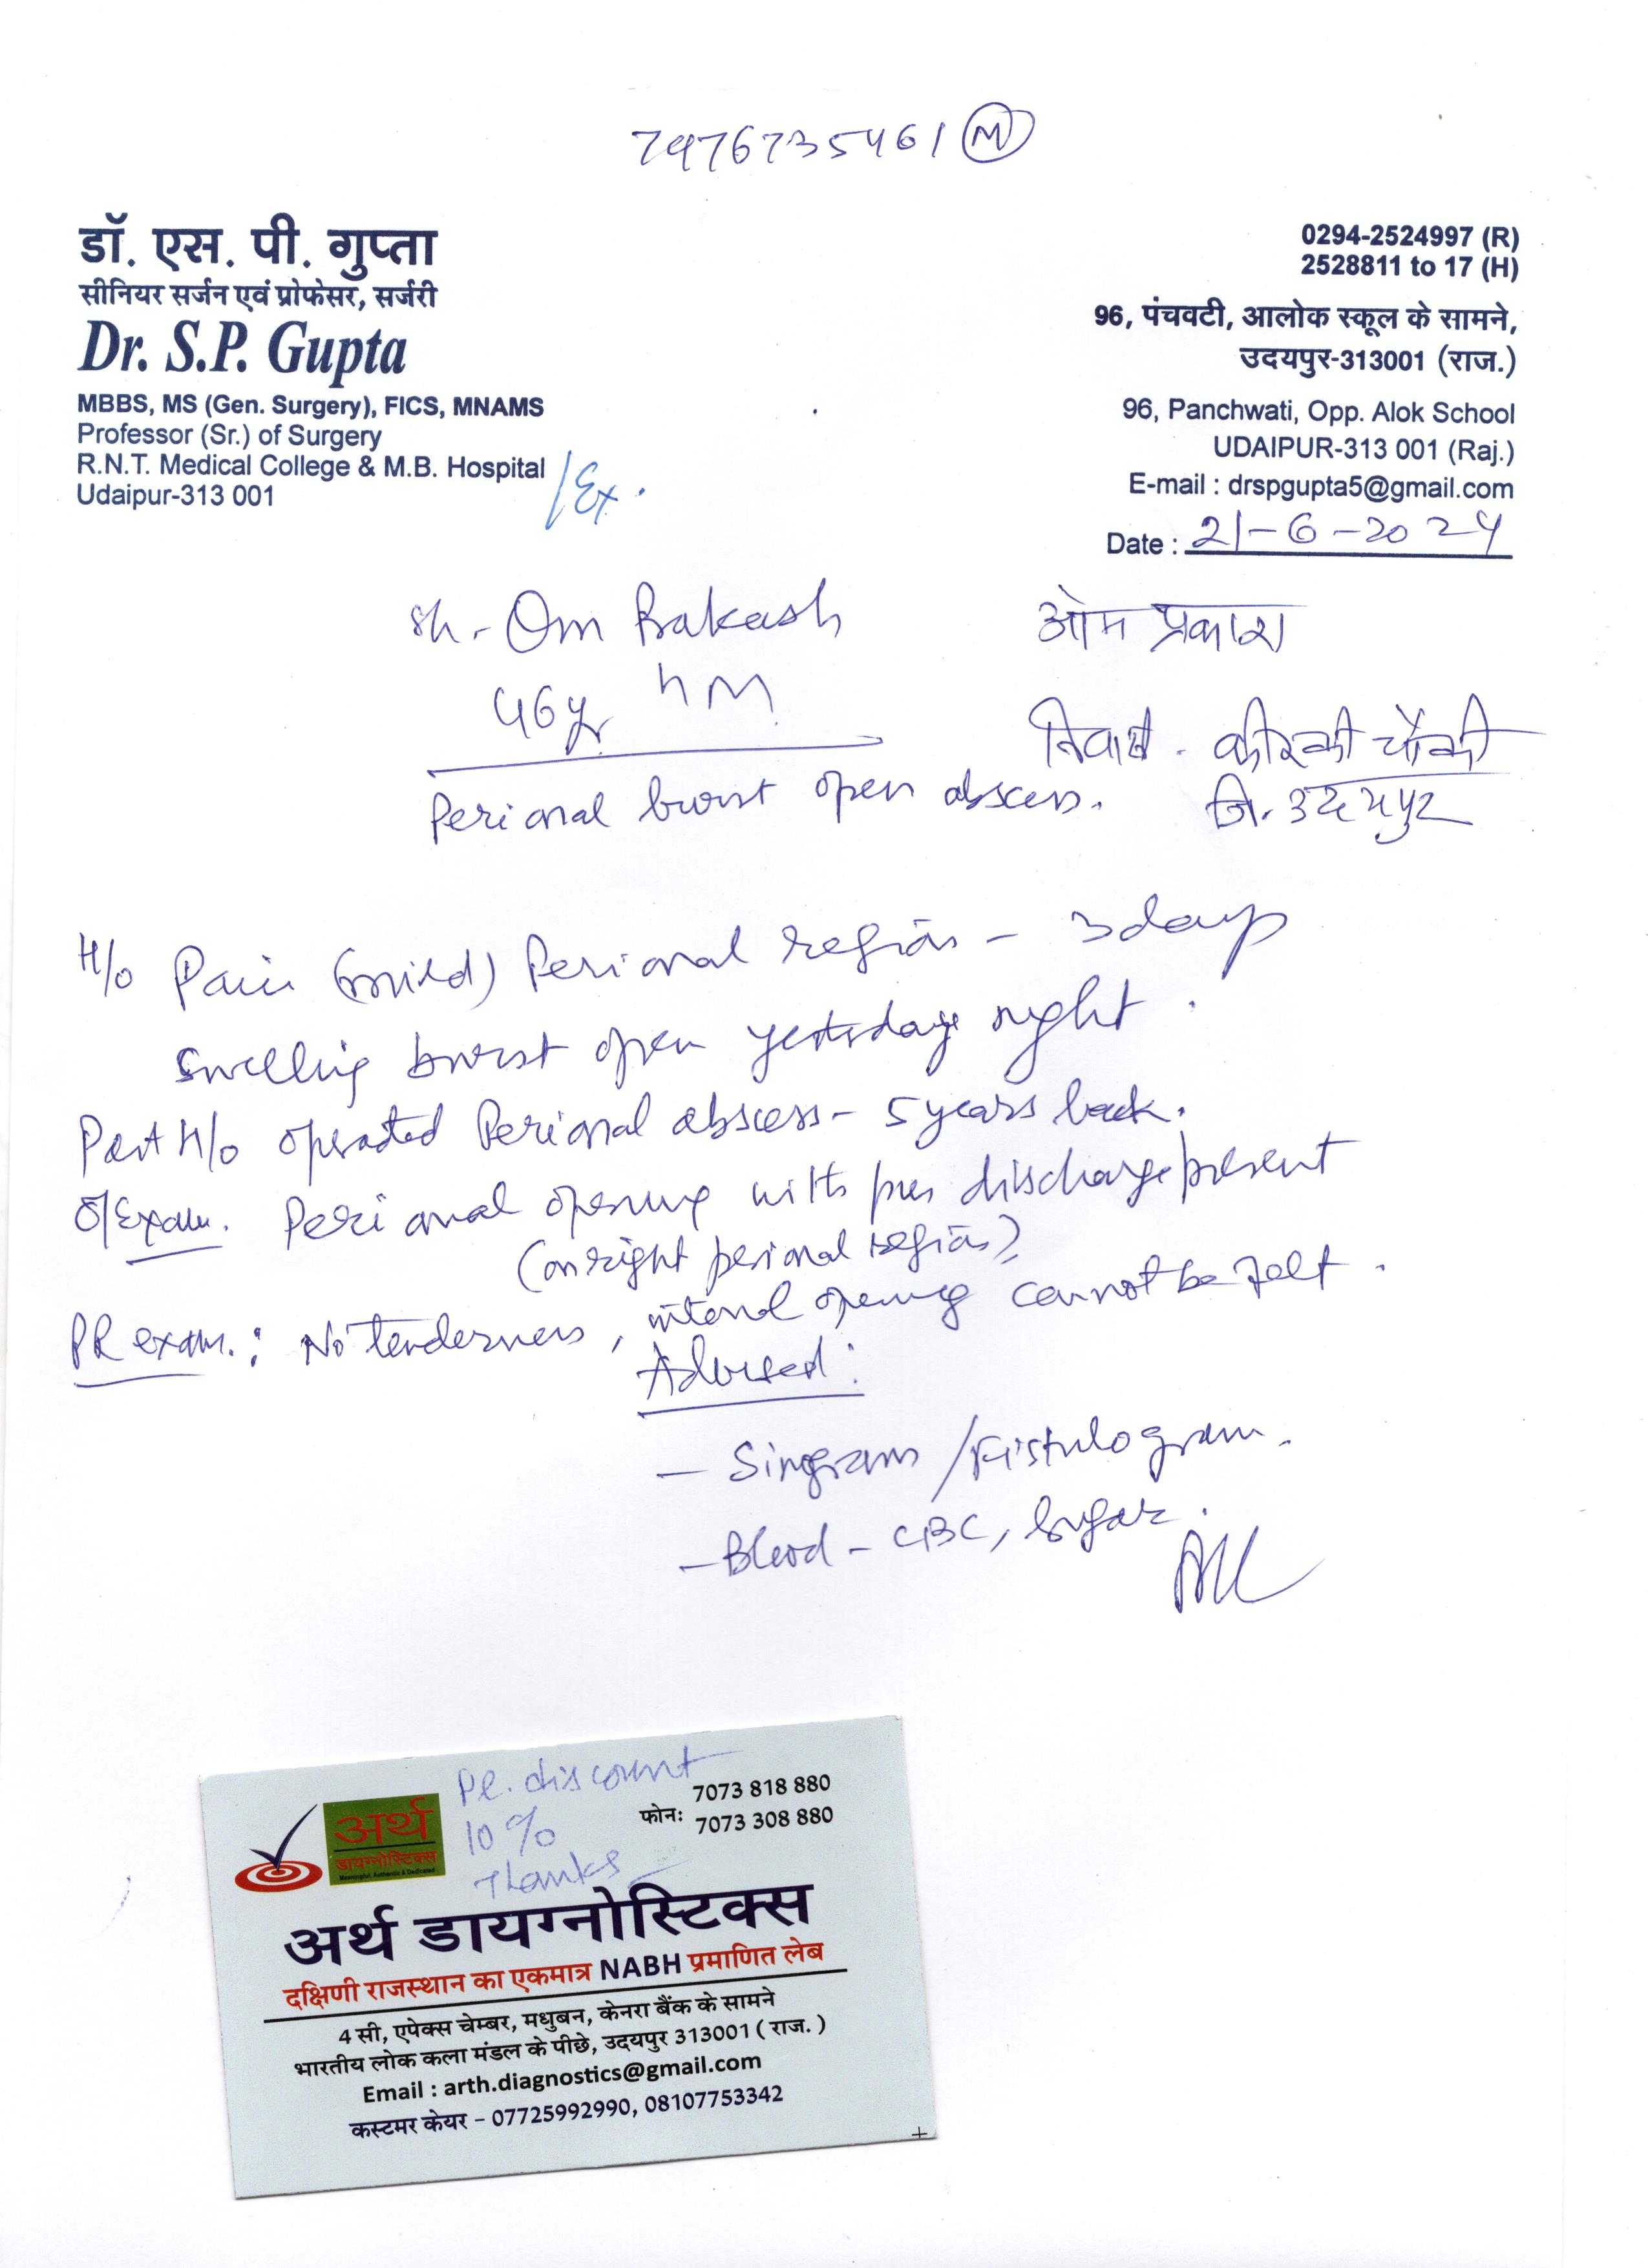 7976735461 (M)
डॉ. एस. पी. गुप्ता
सीनियर सर्जन एवं प्रोफेसर, सर्जरी
Dr. S.P. Gupta
MBBS, MS (Gen. Surgery), FICS, MNAMS
Professor (Sr.) of Surgery
R.N.T. Medical College & M.B. Hospital
Udaipur-313 001
/Ex.
0294-2524997 (R)
2528811 to 17 (H)
96, पंचवटी, आलोक स्कूल के सामने,
उदयपुर-313001 (राज.)
96, Panchwati, Opp. Alok School
UDAIPUR-313 001 (Raj.)
E-mail : drspgupta5@gmail.com
Date : 21-6-2024
Sh. Om Prakash
46yr HM
ओम प्रकाश
निवास - की चौकी
जि. उदयपुर
Perianal burst open abscess.
H/o Pain (mild) Perianal region - 3 days
Swelling burst open yesterday night.
Past H/o operated Perianal abscess - 5 years back.
O/Exam. Perianal opening with pus discharge present
(on right perianal region)
PR exam. : No tenderness, internal opening cannot be felt.
Advised :
- Sinogram / Fistulogram.
- Blood - CBC, Sugar.
Pl. discount
10 %
Thanks
अर्थ
डायग्नोस्टिक्स
Meaningful, Authentic & Dedicated
फोन: 7073 818 880
7073 308 880
अर्थ डायग्नोस्टिक्स
दक्षिणी राजस्थान का एकमात्र NABH प्रमाणित लेब
4 सी, एपेक्स चेम्बर, मधुबन, केनरा बैंक के सामने
भारतीय लोक कला मंडल के पीछे, उदयपुर 313001 ( राज. )
Email : arth.diagnostics@gmail.com
कस्टमर केयर - 07725992990, 08107753342